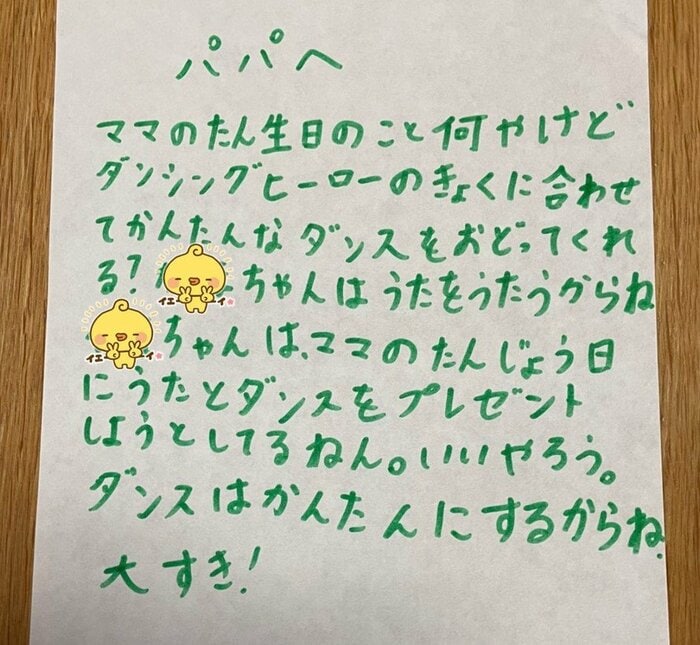 パパへ
ママのたん生日のこと何やけど
ダンシングヒーローのきょくに合わせ
てかんたんなダンスをおどってくれ
る? イエーイ ちゃんはうたをうたうからね
イエーイ ちゃんは、ママのたんじょう日
にうたとダンスをプレゼント
しようとしてるねん。いいやろう。
ダンスはかんたんにするからね.
大すき!